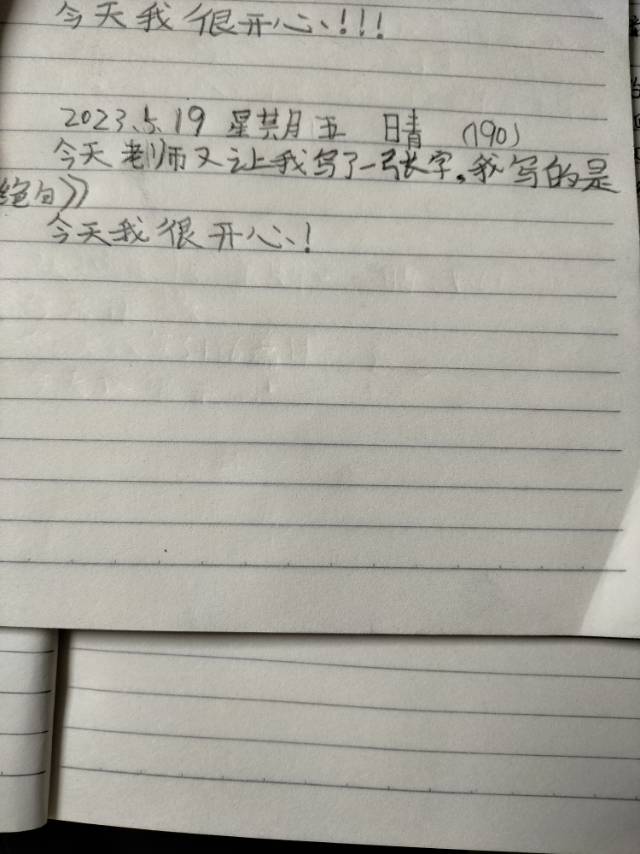 今天我很开心!!!
2023.5.19 星其月五 晴 (190)
今天老师又让我写了一张字。我写的是
绝句》
今天我很开心!